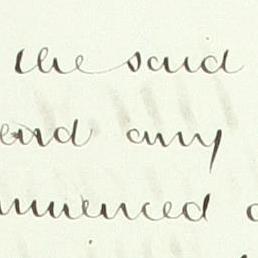 the said
end any
mmenced